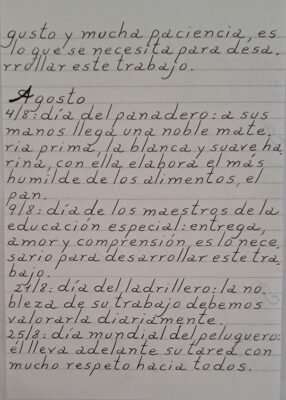 gusto y mucha paciencia, es
lo que se necesita para desa.
rrollar este trabajo.
Agosto
4/8: día del panadero: a sus
manos llega una noble mate.
ria prima, la blanca y suave ha
rina, con ella elabora el más
humilde de los alimentos, el
pan.
9/8: día de los maestros de la
educación especial: entrega,
amor y comprensión, es lo nece.
sario para desarrollar este tra.
bajo.
21/8: día del ladrillero: la no.
bleza de su trabajo debemos
valorarla diariamente.
25/8: día mundial del peluquero:
él lleva adelante su tarea con
mucho respeto hacia todos.